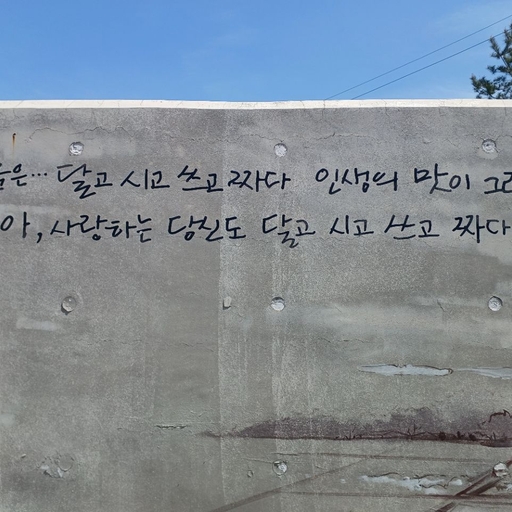 은… 달고 시고 쓰고 짜다 인생의 맛이
아, 사랑하는 당신도 달고 시고 쓰고 짜다